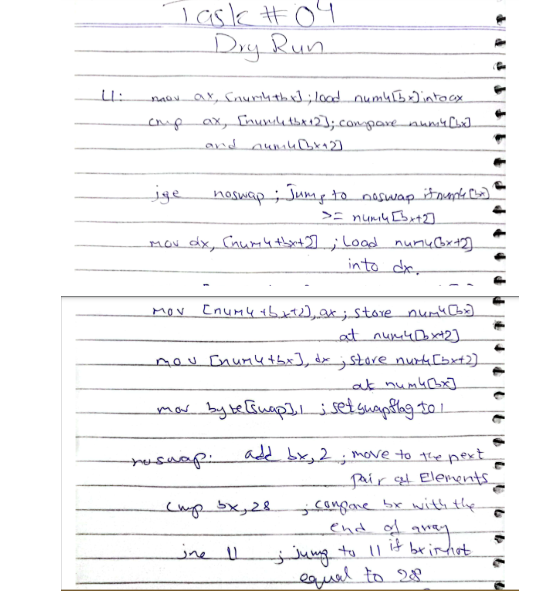 Task #04
Dry Run
l1: mov ax, [num4+bx] ; load num4[bx] into ax
cmp ax, [num4+bx+2] ; compare num4[bx]
and num4[bx+2]
jge noswap ; Jump to noswap if num4[bx]
>= num4[bx+2]
mov dx, [num4+bx+2] ; Load num4[bx+2]
into dx.
mov [num4+bx+2], ax ; store num4[bx]
at num4[bx+2]
mov [num4+bx], dx ; store num4[bx+2]
at num4[bx]
mov byte[swap], 1 ; set swap flag to 1
noswap: add bx, 2 ; move to the next
pair of Elements
cmp bx, 28 ; compare bx with the
end of array
jne l1 ; jump to l1 if bx is not
equal to 28